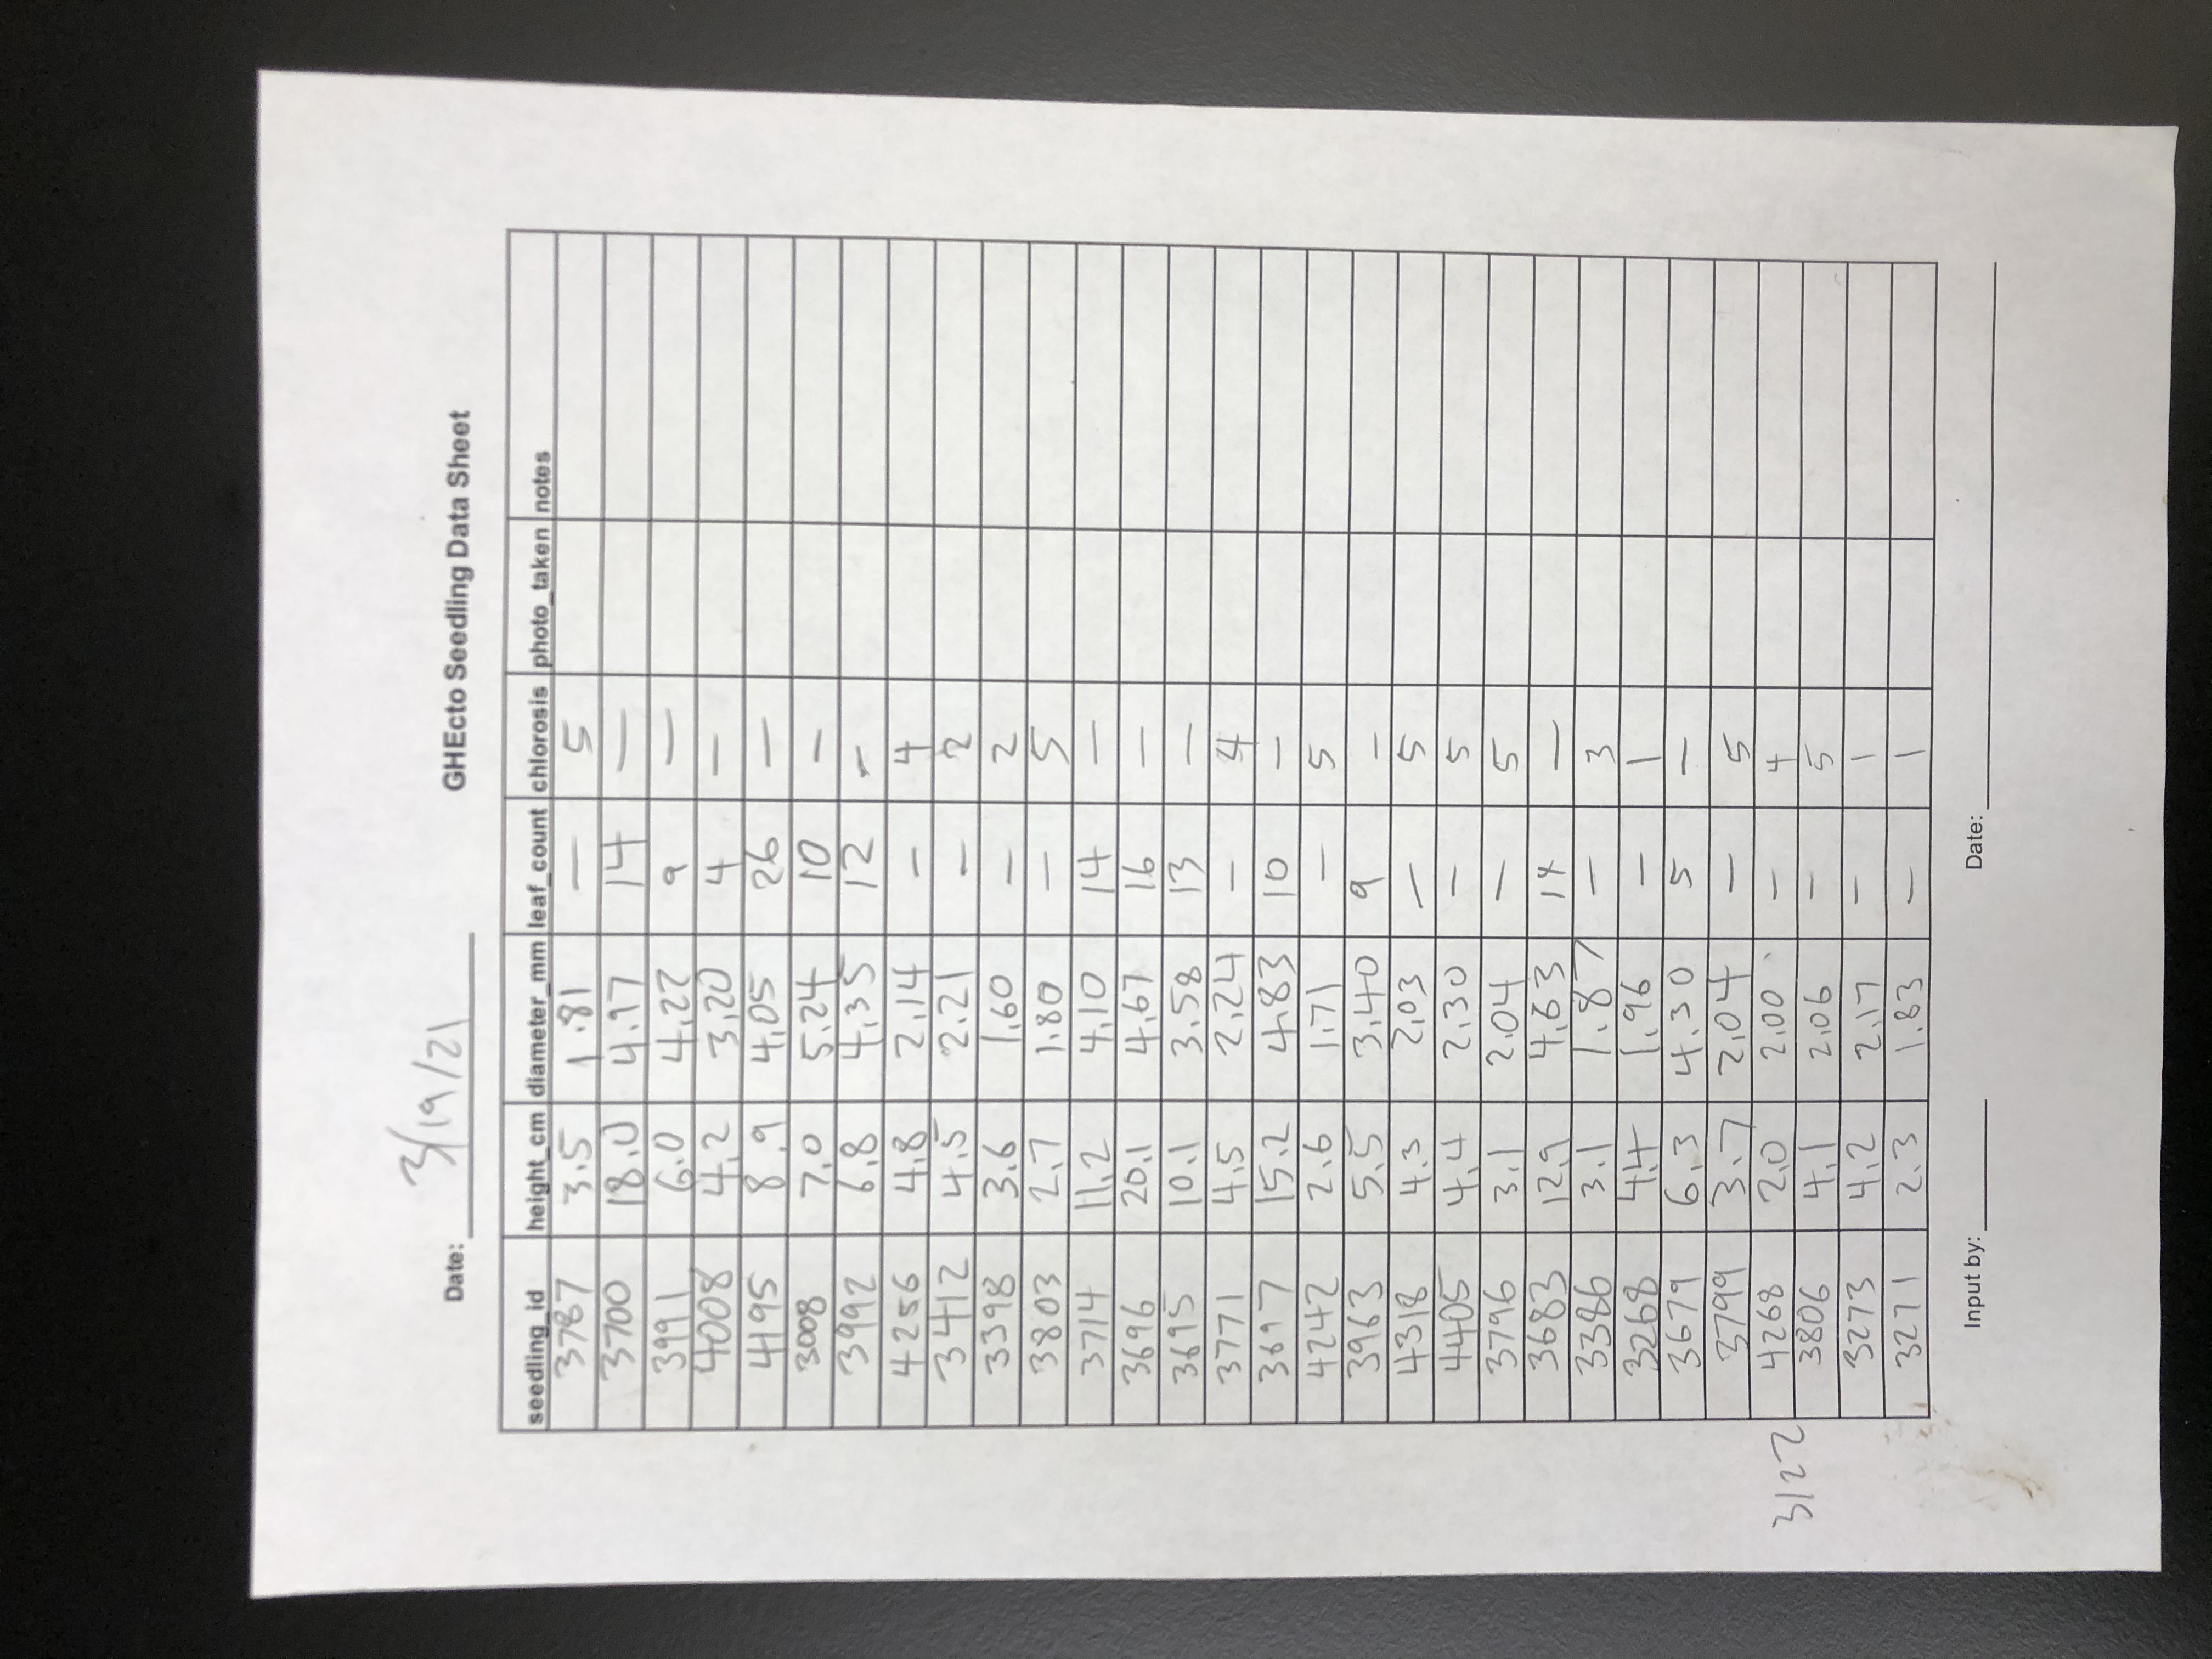 Date: 3/19/21
GHEcto Seedling Data Sheet
seedling_id height_cm diameter_mm leaf_count chlorosis photo_taken notes
3787 3.5 1.81 — 5
3700 18.0 4.97 14 —
3991 6.0 4.22 9 —
4008 4.2 3.20 4 —
4195 8.9 4.05 26 —
3008 7.0 5.24 10 —
3992 6.8 4.35 12 -
4256 4.8 2.14 - 4
3412 4.5 2.21 — 2
3398 3.6 1.60 — 2
3803 2.7 1.80 — 5
3714 11.2 4.10 14 —
3696 20.1 4.67 16 —
3695 10.1 3.58 13 —
3771 4.5 2.24 — 4
3697 15.2 4.83 10 —
4242 2.6 1.71 — 5
3963 5.5 3.40 9 —
4318 4.3 2.03 — 5
4405 4.4 2.30 — 5
3796 3.1 2.04 — 5
3683 12.9 4.63 14 —
3386 3.1 1.87 — 3
3268 4.4 1.96 — 1
3679 6.3 4.30 5 —
3799 3.7 2.04 — 5
3/22 4268 2.0 2.00 — 4
3806 4.1 2.06 — 5
3273 4.2 2.17 — 1
3271 2.3 1.83 — 1
Input by: Date: